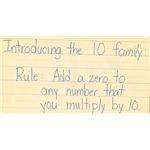 Introducing the 10 family
Rule: Add a zero to
any number that
you multiply by 10.